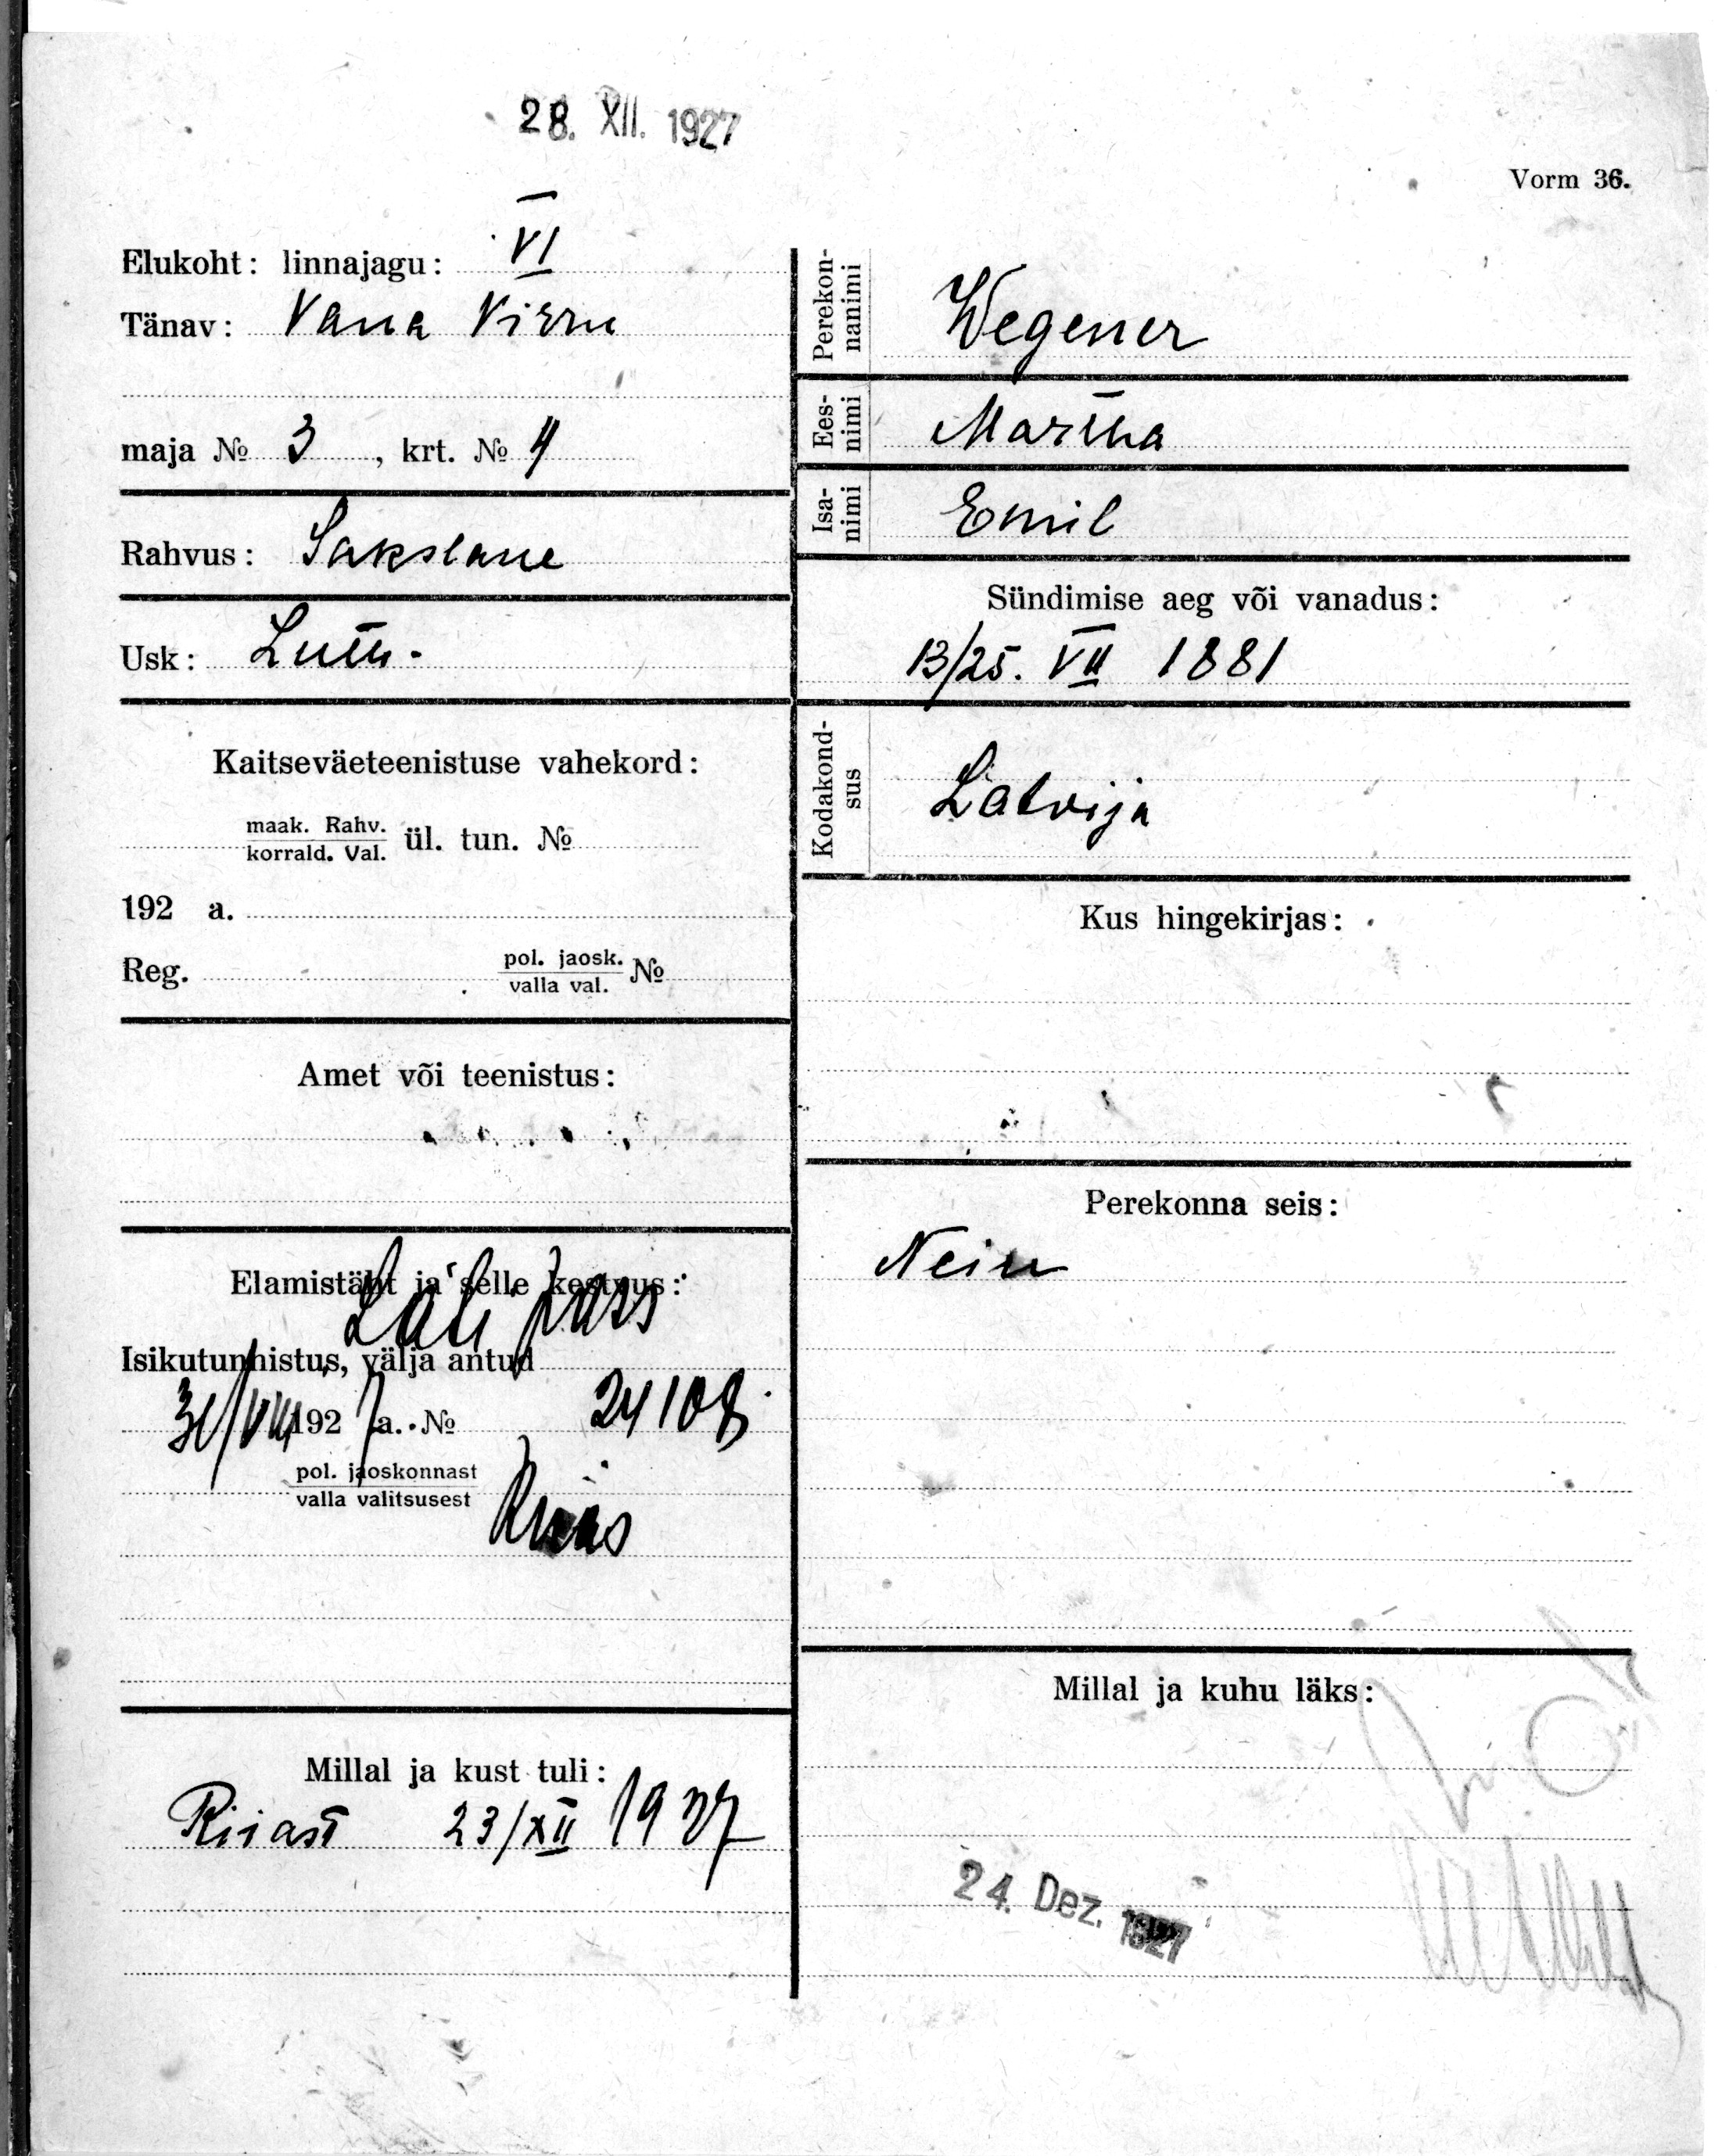 28. XII. 1927
Vorm 36.
Elukoht: linnajagu: VI
Tänav: Vana Virru
maja № 3, krt. № 4
Rahvus: Sakslane
Usk: Luth.
Kaitseväeteenistuse vahekord:
maak. Rahv.
korrald. Val. ül. tun. №
192 a.
Reg. pol. jaosk.
valla val. №
Amet või teenistus:
Elamistäht ja selle kestvus:
Läti pass
Isikutunnistus, välja antud
31/VIII 1927 a. № 24108
pol. jaoskonnast
valla valitsusest
Riias
Millal ja kust tuli:
Riiast 23/XII 1927
Perekon-
nanimi
Wegener
Ees-
nimi
Martha
Isa-
nimi
Emil
Sündimise aeg või vanadus:
13/25. VII 1881
Kodakond-
sus
Latvija
Kus hingekirjas:
Perekonna seis:
Neiu
Millal ja kuhu läks:
24. Dez. 1927